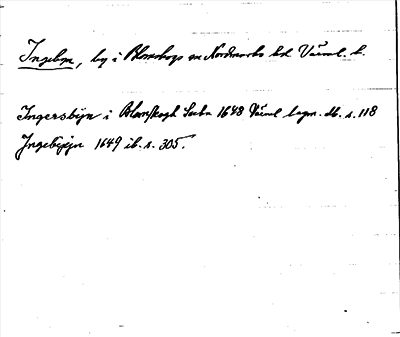 Ingebyn, by i Blomskogs sn Nordmarks hd. Värml. l.
Ingersbÿn i Blomskogh Sochn 1648 Värml lagm. db. s. 118
Ingebÿn 1649 ib. s. 305.